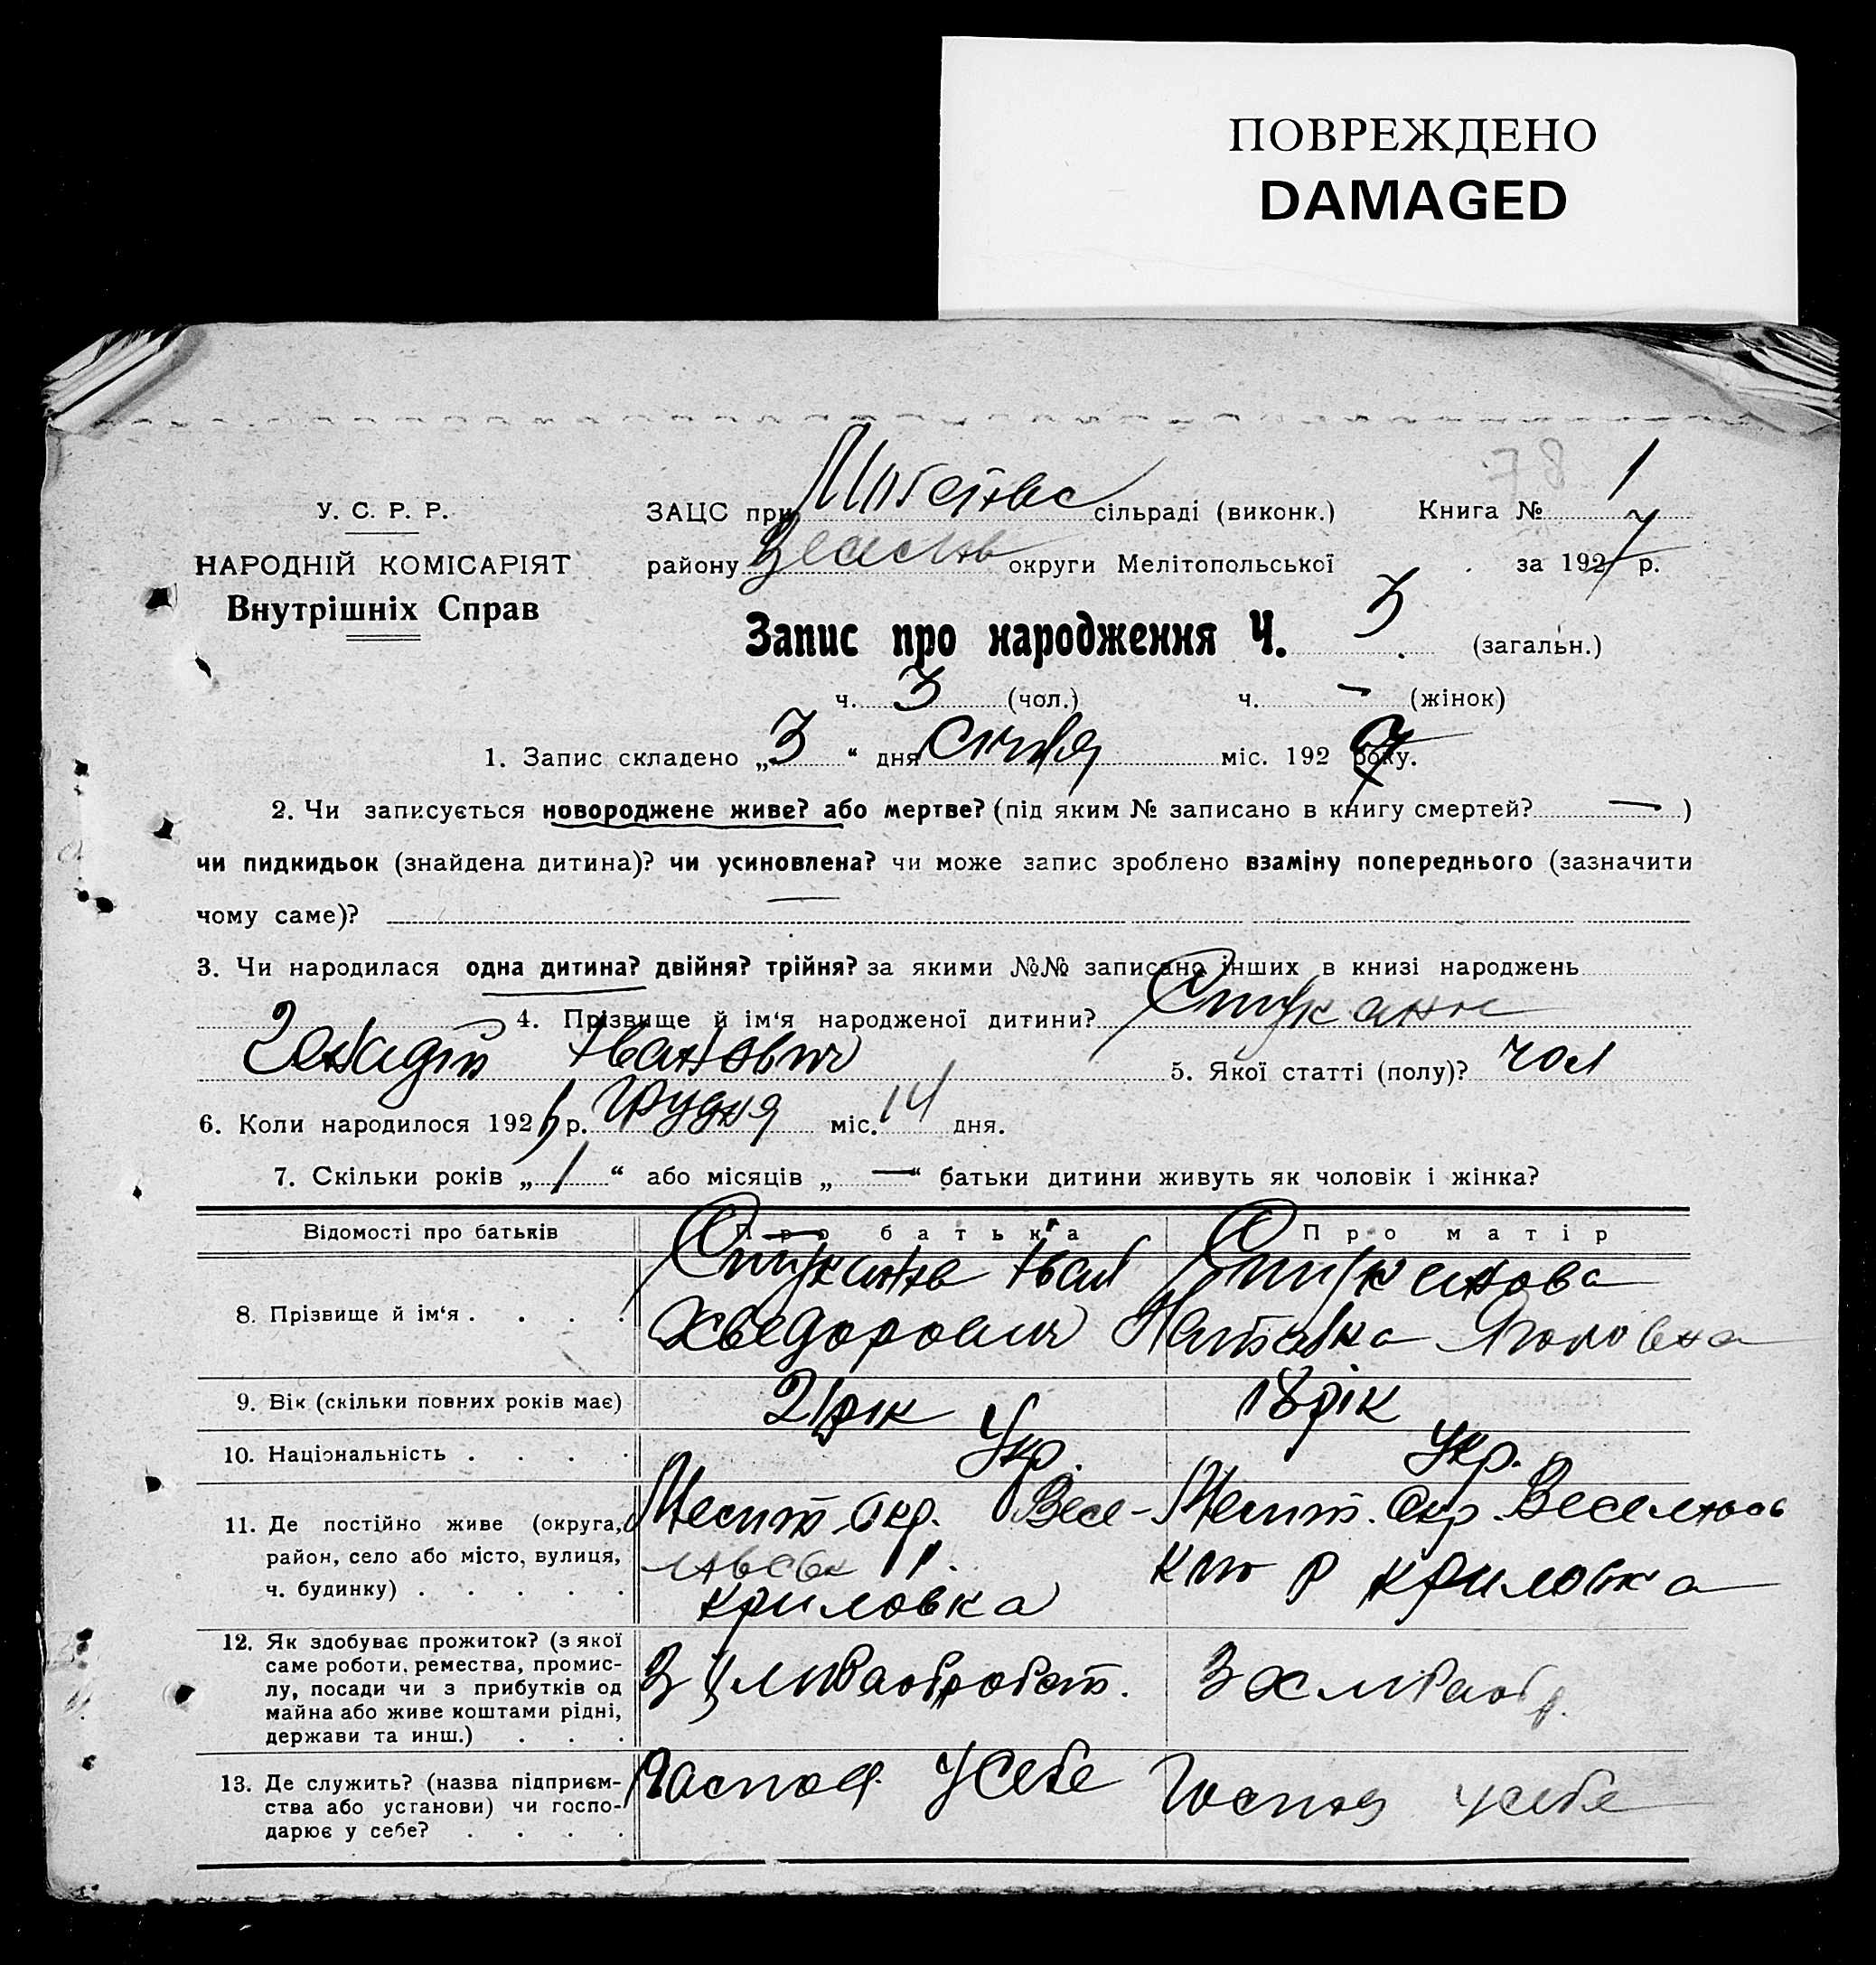 ПОВРЕЖДЕНО
DAMAGED
78 1
У. С. Р. Р. ЗАЦС при сільраді (виконк.) Книга №
НАРОДНІЙ КОМІСАРІЯТ району округи Мелітопольської за 1927 р.
Внутрішніх Справ
Запис про народження Ч. 3 (загальн.)
ч. 3 (чол.) ч. – (жінок)
1. Запис складено „3“ дня Січня міс. 1927 року.
2. Чи записується новороджене живе? або мертве? (під яким № записано в книгу смертей? — )
чи пидкидьок (знайдена дитина)? чи усиновлена? чи може запис зроблено взаміну попереднього (зазначити
чому саме)? —
3. Чи народилася одна дитина? двійня? трійня? за якими №№ записано інших в книзі народжень
4. Прізвище й ім‘я народженої дитини?
Генадій Іванович 5. Якої статті (полу)? чол
6. Коли народилося 1926 р. Грудня міс. 14 дня.
7. Скільки років „1“ або місяців „—“ батьки дитини живуть як чоловік і жінка?
Відомості про батьків Про батька Про матір
8. Прізвище й ім‘я . . . . Іван
Хведорович
9. Вік (скільки повних років має) 21 рік 18 рік
10. Національність . . . . Укр. Укр.
11. Де постійно живе (округа, район, село або місто, вулиця, ч. будинку) . . . . . Мелит. окр. Весе- Мелит. Окр.
р. Р Криловка
Криловка
12. Як здобуває прожиток? (з якої
саме роботи, ремества, промис-
лу, посади чи з прибутків од
майна або живе коштами рідні,
держави та инш.) . . .
13. Де служить? (назва підприєм-
ства або установи) чи госпо-
дарює у себе? . . . . Господ. у себе Господ у себе